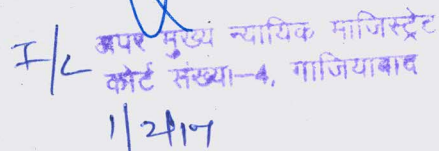 I/c अपर मुख्य न्यायिक माजिस्ट्रेट
कोर्ट संख्या-4, गाजियाबाद
1/2/17